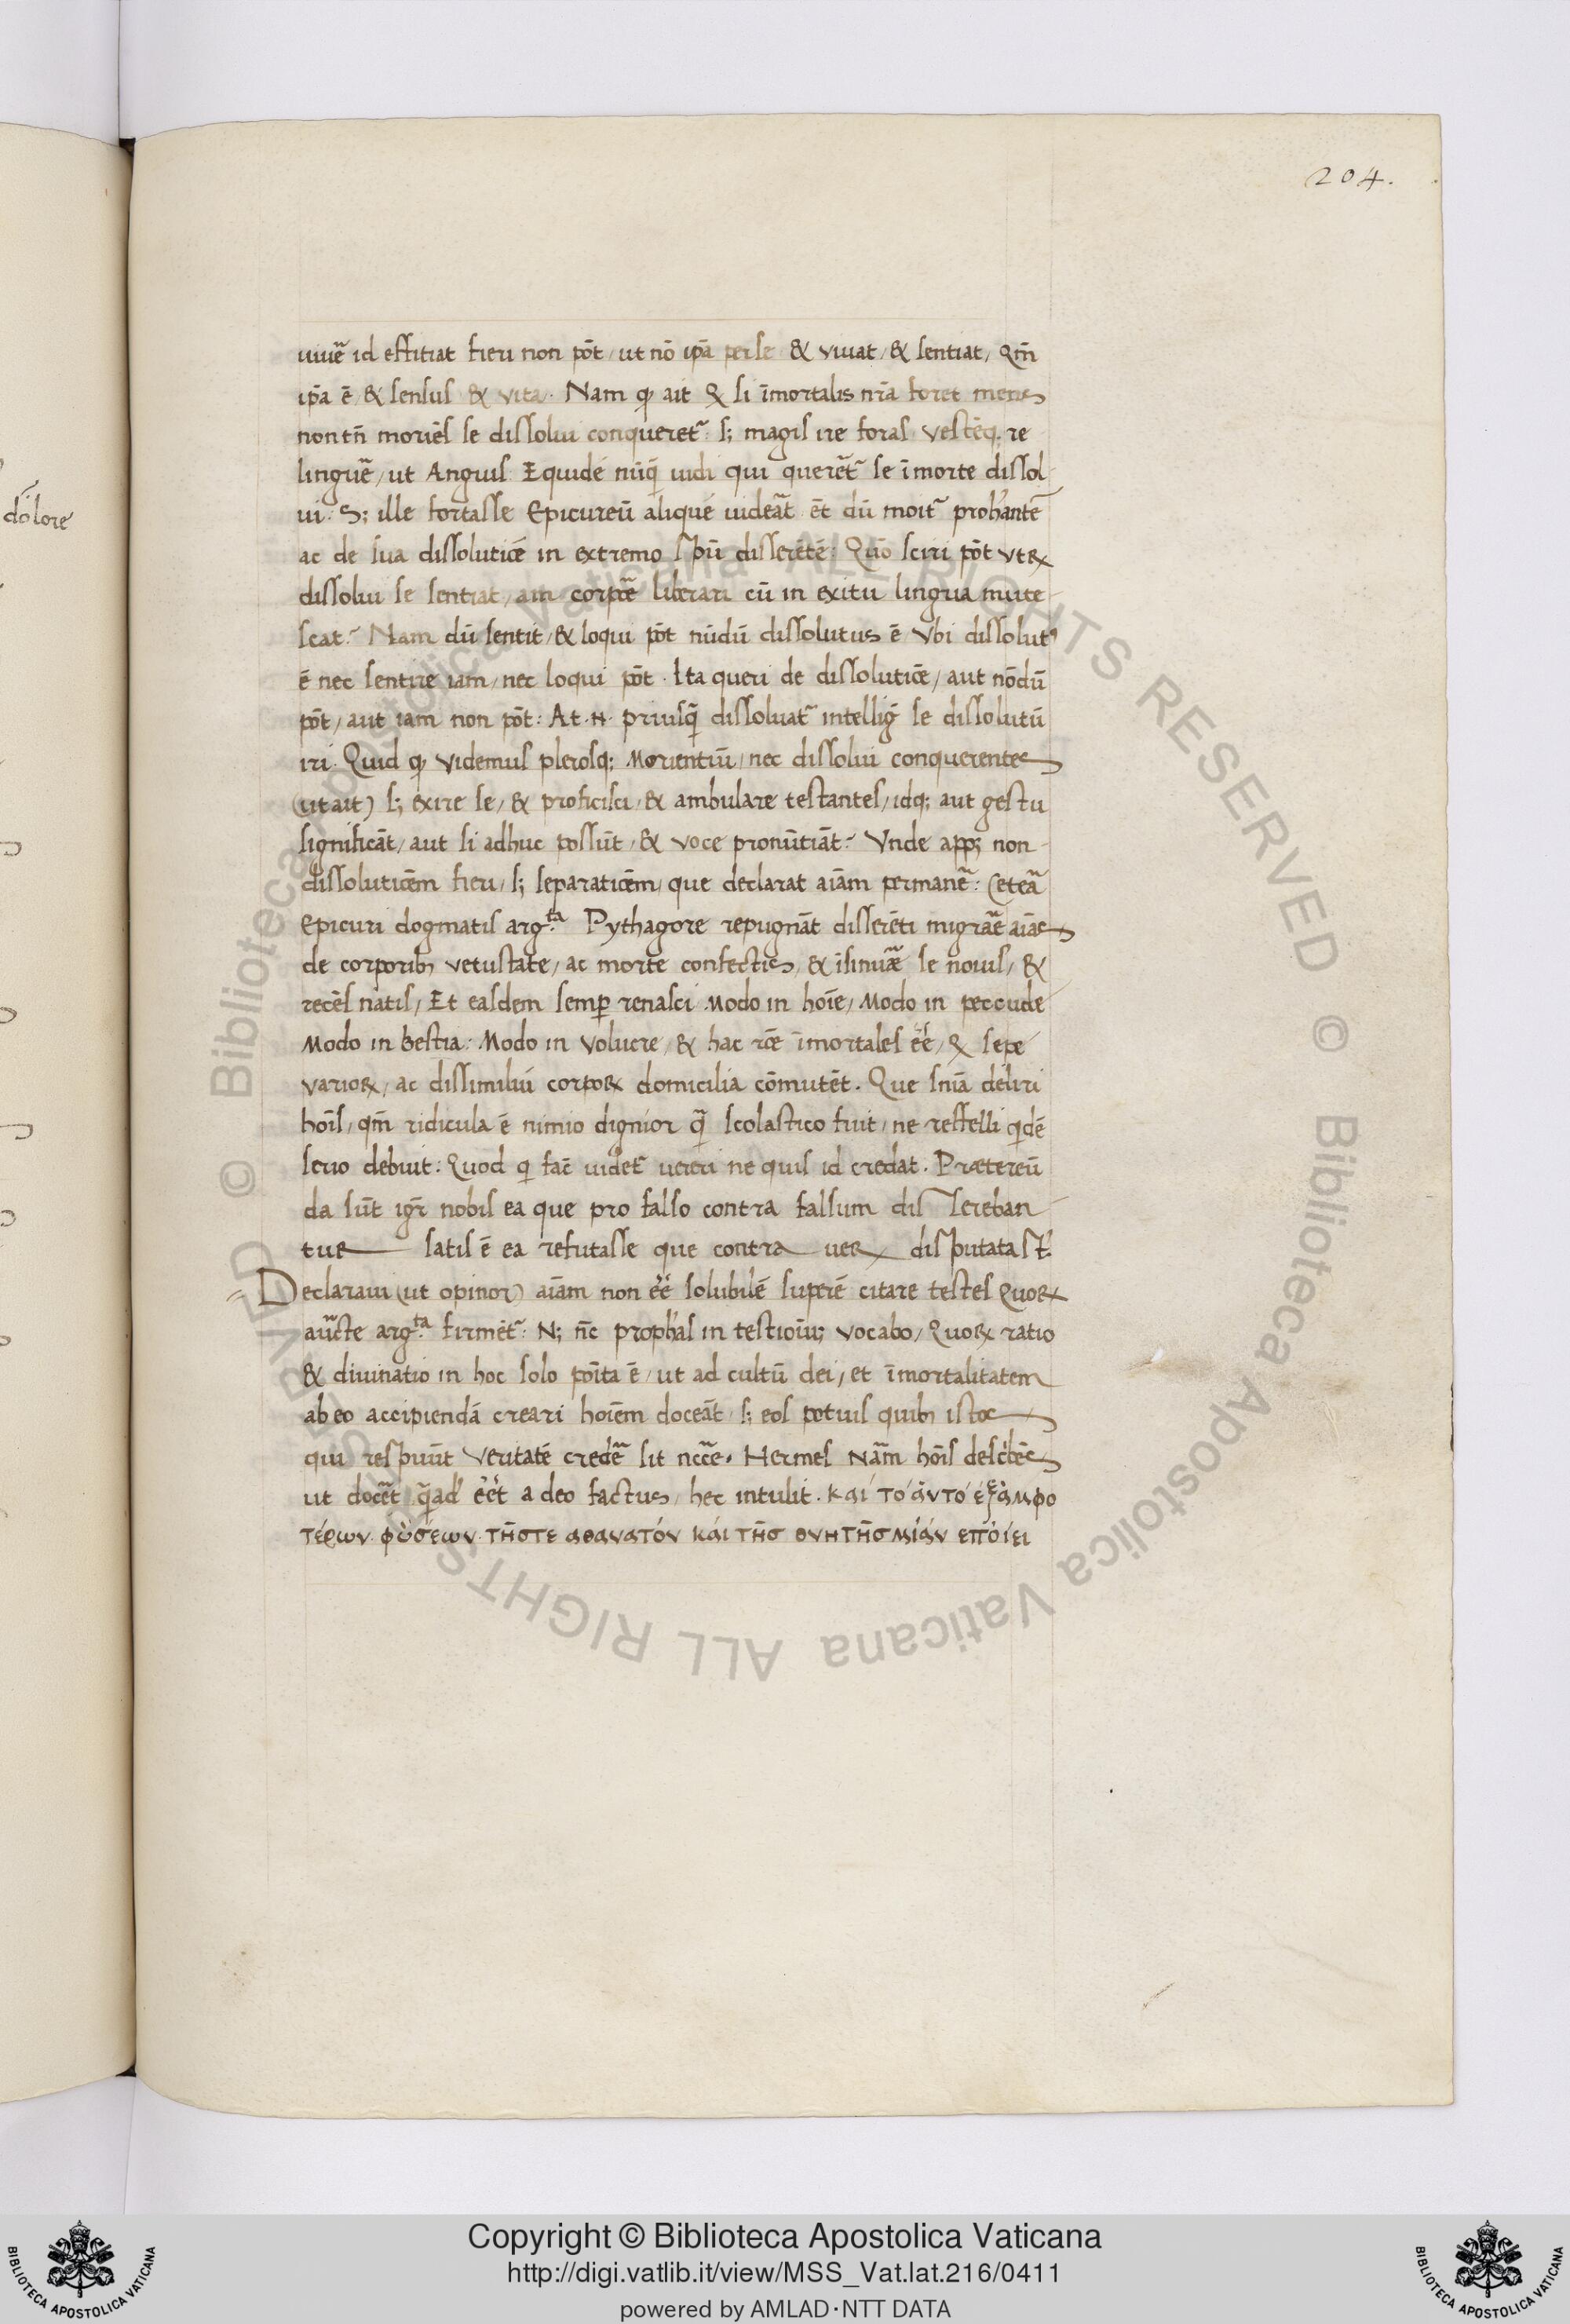 204.
dólore
uiuẽ id effitiat fieri non põt / ut nõ ip̃a per se & viuat / & sentiat / Qm̃
ip̃a ẽ & sensus & vita. Nam ꝙ ait Q si ĩmortalis nr̃a foret mens
non tñ moriẽs se dissolui conqueret᷑ s; magis ire foras vestẽq. re
linguẽ / ut Anguis Equidé nũq̃ uidi qui querẽt᷑ se ĩ morte dissol
ui. S; ille fortasse Epicureũ aliqué uideãt ẽt dũ moit᷑ proħante
ac de sua dissolutiõe in extremo sp̃u disserẽté: Quõ sciri põt vtꝝ
dissolui se sentiat / an corpẽ liberari cũ in exitu lingua mute
scat? Nam dũ sentit / & loqui põt nũdũ dissolutus ẽ Vbi dissolutꝰ
ẽ nec sentire iam / nec loqui põt. Ita queri de dissolutiõe / aut nõdũ
põt / aut iam non põt: At .N. priusq̃ dissoluat᷑ intellig̃ se dissolutũ
iri. Quid ꝙ videmus plerosq; Morientiũ / nec dissolui conquerentes
(ut ait) s; exire se / & proficisci / & ambulare testantes / idq; aut gestu
significãt / aut si adhuc possũt / & voce pronũtiãt? Vnde app; non
dissolutiõem fieri / s; separatiõem / que declarat aiãm permanẽ: Ceteã
Epicuri dogmatis arg.ta Pythagore repugnãt disserẽti migrãe aiãs
de corporibꝫ vetustate / ac morte confectis / & ĩsinuãe se nouis / &
recẽs natis / Et easdem semp̱ renasci Modo in hoĩe / Modo in peccude
Modo in bestia: Modo in volucre / & hac rõe ĩmortales eẽ / Q sepe
varioꝝ / ac dissimiliũ corpoꝝ domicilia cõmutẽt. Que snĩa deliri
hoĩs / qm̃ ridicula ẽ nimio dignior q̃ scolastico fuit / ne reffelli qidẽ
serio debuit: Quod q fac̃ uidet᷑ uereri ne quis id credat. Prætereũ
da sũt igr̃ nobis ea que pro falso contra falsum dis sereban
tur satis ẽ ea refutasse que contra ueꝝ disputata st̃
Declaraui (ut opinor) aiãm non eẽ solubilẽ superẽ citare testes Quoꝝ
auc̃te arg.ta firmẽt᷑ N; nc̃ prophãs in testioĩu; vocabo / Quoꝝ ratio
& diuinatio in hoc solo põita ẽ / ut ad cultũ dei / et ĩmortalitatem
ab eo accipiendã creari hoĩem doceãt / s; eos potius quibꝫ istos
qui respuũt veritatẽ credẽ sit nccẽ. Hermes nãm hoĩs describẽs
ut docẽt q̃ad eẽt a deo factus / hec intulit. καί τὸ ἀυτὸ ἐξἀμφο
τέρων φὕσέων τῆστε αθανατόν κάι τῆσ θνητῆσ μίάν επόίει
© Biblioteca Apostolica Vaticana ALL RIGHTS RESERVED © Biblioteca Apostolica Vaticana ALL RIGHTS RESERVED
BIBLIOTECA APOSTOLICA VATICANA
Copyright © Biblioteca Apostolica Vaticana
http://digi.vatlib.it/view/MSS_Vat.lat.216/0411
powered by AMLAD·NTT DATA
BIBLIOTECA APOSTOLICA VATICANA